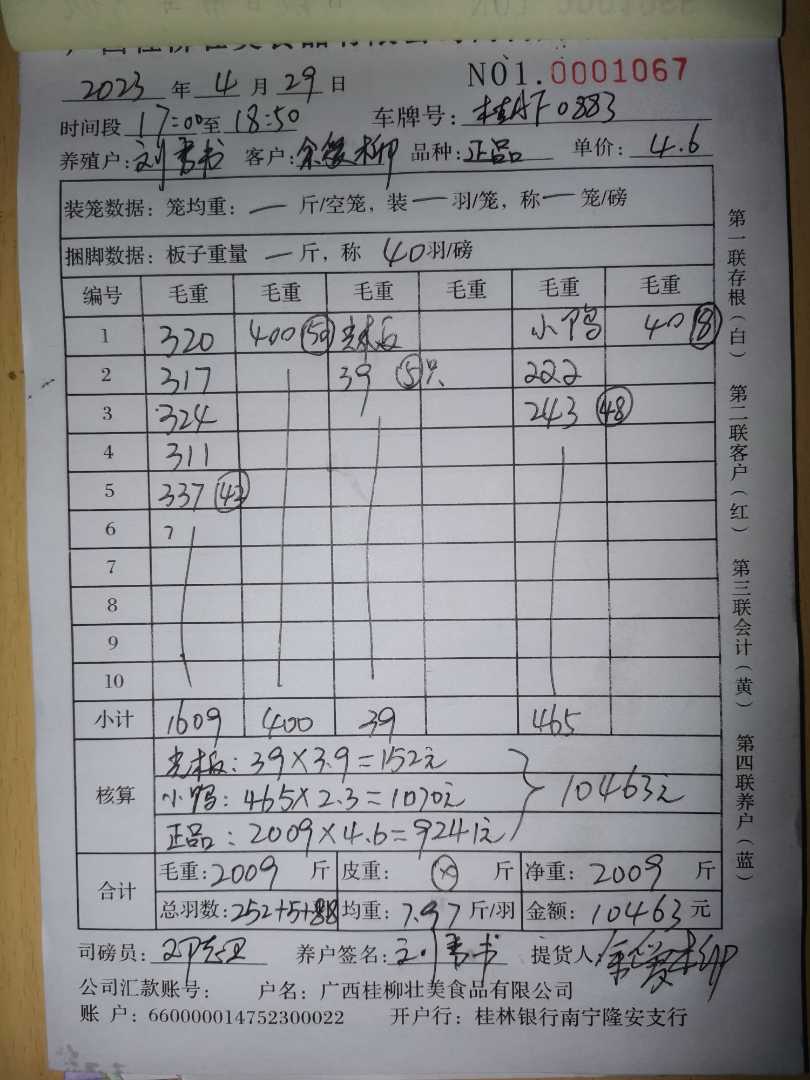 2023 年 4 月 29 日 NO1.0001067
时间段 17:00至 18:50 车牌号: 桂AF0883
养殖户: 刘书 客户: 余 柳 品种: 正品 单价: 4.6
装笼数据: 笼均重: — 斤/空笼, 装 — 羽/笼, 称 — 笼/磅
捆脚数据: 板子重量 — 斤, 称 40羽/磅
编号 毛重 毛重 毛重 毛重 毛重 毛重
1 320 400 50 光板 小鸭 40 8
2 317 39 5只 222
3 324 243 48
4 311
5 337 42
6
7
8
9
10
小计 1609 400 39 465
核算
光板: 39×3.9=152元
小鸭: 465×2.3=1070元
正品: 2009×4.6=9241元
10463元
合计
毛重: 2009 斤 皮重: 斤 净重: 2009 斤
总羽数: 252+5+88 均重: 7.97 斤/羽 金额: 10463 元
司磅员: 养户签名: 刘书 提货人: 余 柳
公司汇款账号: 户名: 广西桂柳壮美食品有限公司
账 户: 660000014752300022 开户行: 桂林银行南宁隆安支行
第一联存根(白) 第二联客户(红) 第三联会计(黄) 第四联养户(蓝)